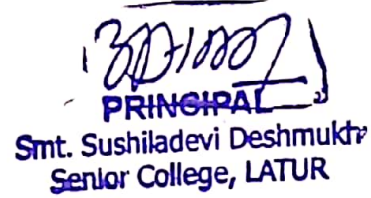 PRINCIPAL
Smt. Sushiladevi Deshmukh
Senior College, LATUR